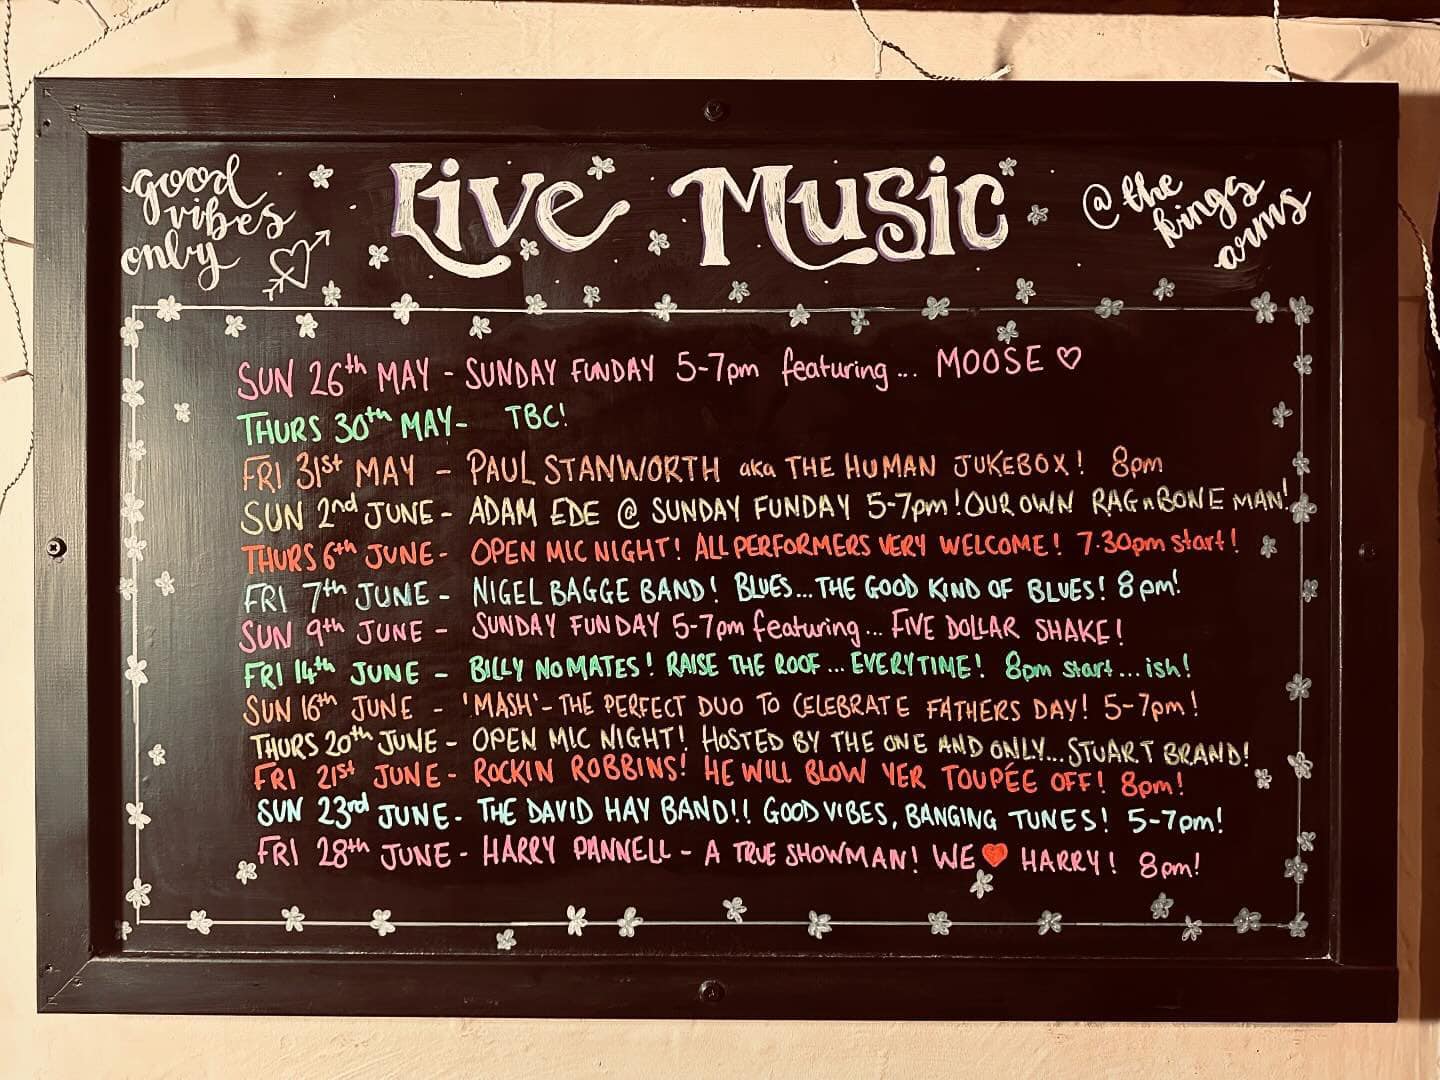 good vibes only
Live Music
@ the kings arms
SUN 26th MAY - SUNDAY FUNDAY 5-7pm featuring... MOOSE ♡
THURS 30th MAY- TBC!
FRI 31st MAY - PAUL STANWORTH aka THE HUMAN JUKEBOX! 8pm
SUN 2nd JUNE - ADAM EDE @ SUNDAY FUNDAY 5-7pm! OUR OWN RAG n BONE MAN!
THURS 6th JUNE- OPEN MIC NIGHT! ALL PERFORMERS VERY WELCOME! 7.30pm start!
FRI 7th JUNE - NIGEL BAGGE BAND! BLUES... THE GOOD KIND OF BLUES! 8pm!
SUN 9th JUNE - SUNDAY FUNDAY 5-7pm featuring... FIVE DOLLAR SHAKE!
FRI 14th JUNE - BILLY NO MATES! RAISE THE ROOF... EVERYTIME! 8pm start...ish!
SUN 16th JUNE - 'MASH' - THE PERFECT DUO TO CELEBRATE FATHERS DAY! 5-7pm!
THURS 20th JUNE - OPEN MIC NIGHT! HOSTED BY THE ONE AND ONLY... STUART BRAND!
FRI 21st JUNE - ROCKIN ROBBINS! HE WILL BLOW YER TOUPÉE OFF! 8pm!
SUN 23rd JUNE- THE DAVID HAY BAND!! GOOD VIBES, BANGING TUNES! 5-7pm!
FRI 28th JUNE - HARRY PANNELL - A TRUE SHOWMAN! WE ♥ HARRY! 8pm!